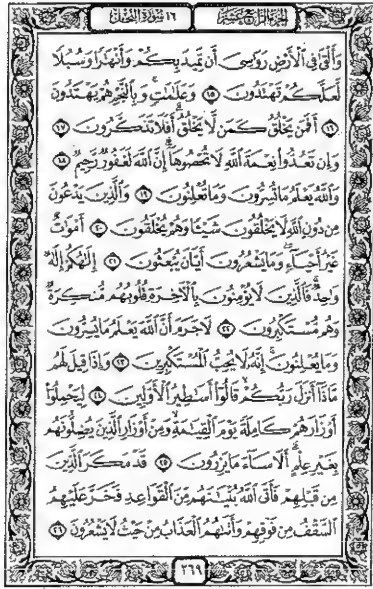 الجزء الرابع عشر
١٦ سورة النحل
وَأَلْقَىٰ فِى ٱلْأَرْضِ رَوَٰسِىَ أَن تَمِيدَ بِكُمْ وَأَنْهَٰرًا وَسُبُلًا
لَّعَلَّكُمْ تَهْتَدُونَ ١٥ وَعَلَٰمَٰتٍ ۚ وَبِٱلنَّجْمِ هُمْ يَهْتَدُونَ
١٦ أَفَمَن يَخْلُقُ كَمَن لَّا يَخْلُقُ ۗ أَفَلَا تَذَكَّرُونَ ١٧
وَإِن تَعُدُّوا۟ نِعْمَةَ ٱللَّهِ لَا تُحْصُوهَآ ۗ إِنَّ ٱللَّهَ لَغَفُورٌ رَّحِيمٌ ١٨
وَٱللَّهُ يَعْلَمُ مَا تُسِرُّونَ وَمَا تُعْلِنُونَ ١٩ وَٱلَّذِينَ يَدْعُونَ
مِن دُونِ ٱللَّهِ لَا يَخْلُقُونَ شَيْـًٔا وَهُمْ يُخْلَقُونَ ٢٠ أَمْوَٰتٌ
غَيْرُ أَحْيَآءٍ ۖ وَمَا يَشْعُرُونَ أَيَّانَ يُبْعَثُونَ ٢١ إِلَٰهُكُمْ إِلَٰهٌ
وَٰحِدٌ ۚ فَٱلَّذِينَ لَا يُؤْمِنُونَ بِٱلْءَاخِرَةِ قُلُوبُهُم مُّنكِرَةٌ
وَهُم مُّسْتَكْبِرُونَ ٢٢ لَا جَرَمَ أَنَّ ٱللَّهَ يَعْلَمُ مَا يُسِرُّونَ
وَمَا يُعْلِنُونَ ۚ إِنَّهُۥ لَا يُحِبُّ ٱلْمُسْتَكْبِرِينَ ٢٣ وَإِذَا قِيلَ لَهُم
مَّاذَآ أَنزَلَ رَبُّكُمْ ۙ قَالُوٓا۟ أَسَٰطِيرُ ٱلْأَوَّلِينَ ٢٤ لِيَحْمِلُوٓا۟
أَوْزَارَهُمْ كَامِلَةً يَوْمَ ٱلْقِيَٰمَةِ ۙ وَمِنْ أَوْزَارِ ٱلَّذِينَ يُضِلُّونَهُم
بِغَيْرِ عِلْمٍ ۗ أَلَا سَآءَ مَا يَزِرُونَ ٢٥ قَدْ مَكَرَ ٱلَّذِينَ
مِن قَبْلِهِمْ فَأَتَى ٱللَّهُ بُنْيَٰنَهُم مِّنَ ٱلْقَوَاعِدِ فَخَرَّ عَلَيْهِمُ
ٱلسَّقْفُ مِن فَوْقِهِمْ وَأَتَىٰهُمُ ٱلْعَذَابُ مِنْ حَيْثُ لَا يَشْعُرُونَ ٢٦
٢٦٩